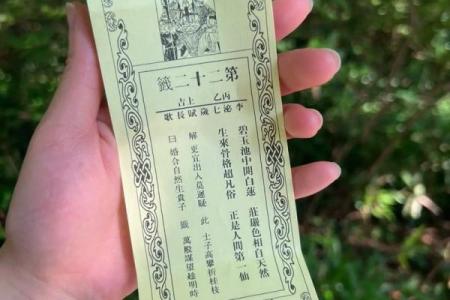 第二十二籤
丙乙上吉
李泌七歲賦長歌
碧玉池中開白蓮 莊嚴色相自天然
生來骨格超凡俗 正是人間第一仙
解 更宜出入莫遲疑 此 士子高攀折桂枝
曰 婚合自然生貴子 籤 萬般謀望趁明時